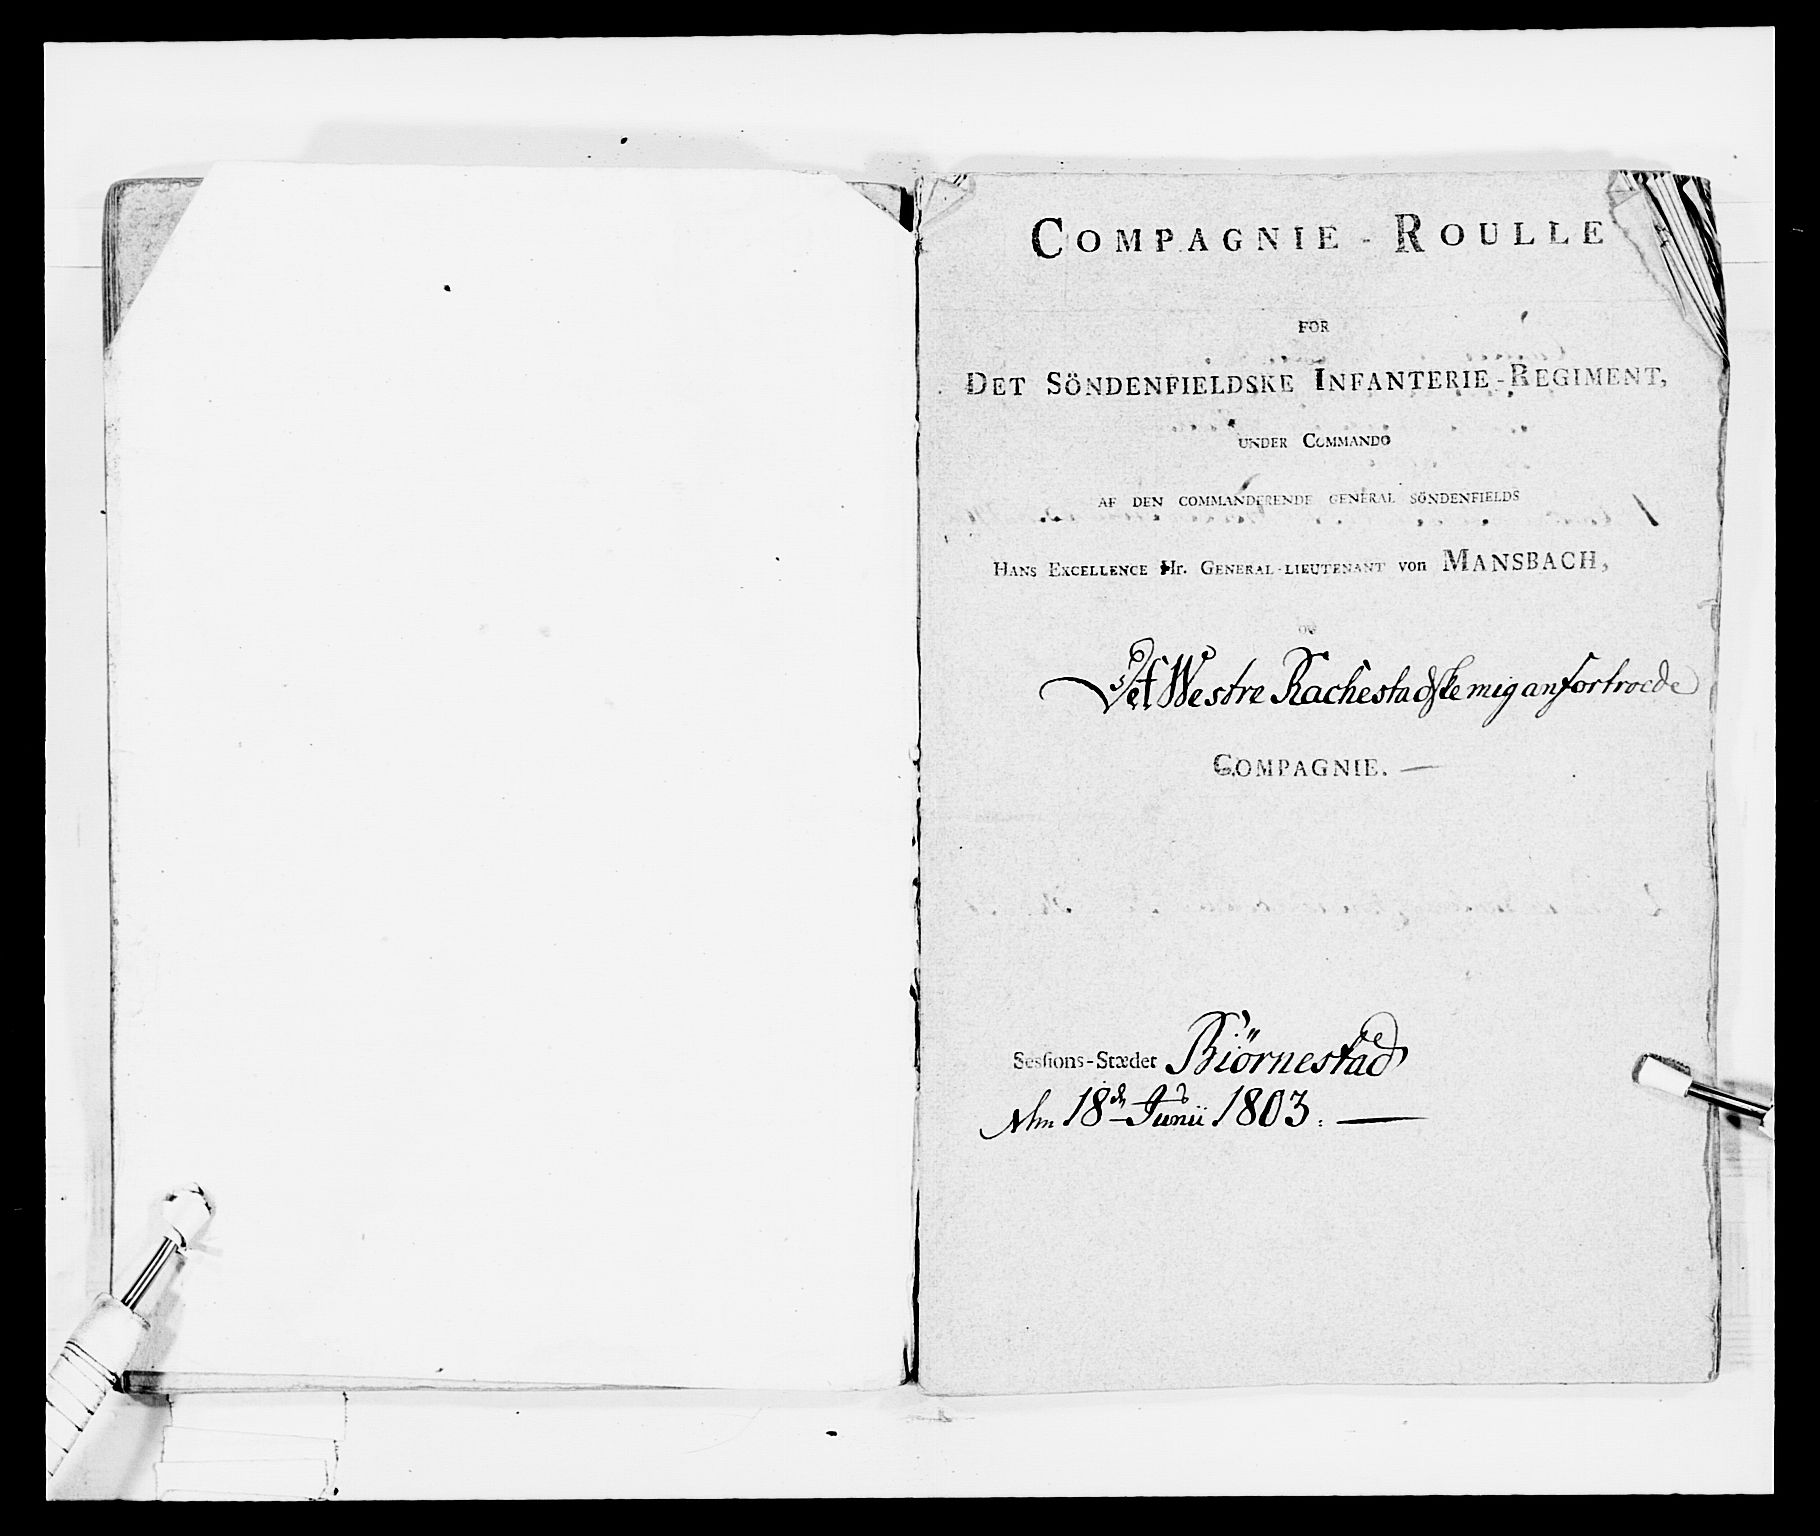 COMPAGNIE-ROULLE
FOR
DET SÖNDENFIELDSKE INFANTERIE-REGIMENT,
UNDER COMMANDO
AF DEN COMMANDERENDE GENERAL SÖNDENFIELDS
HANS EXCELLENCE Hr. GENERAL-LIEUTENANT von MANSBACH,
OG
Det Westre Rachestadske mig anfortroede
COMPAGNIE. —
Sesſions-Stædet Biörnestad
18de Junii 1803. —